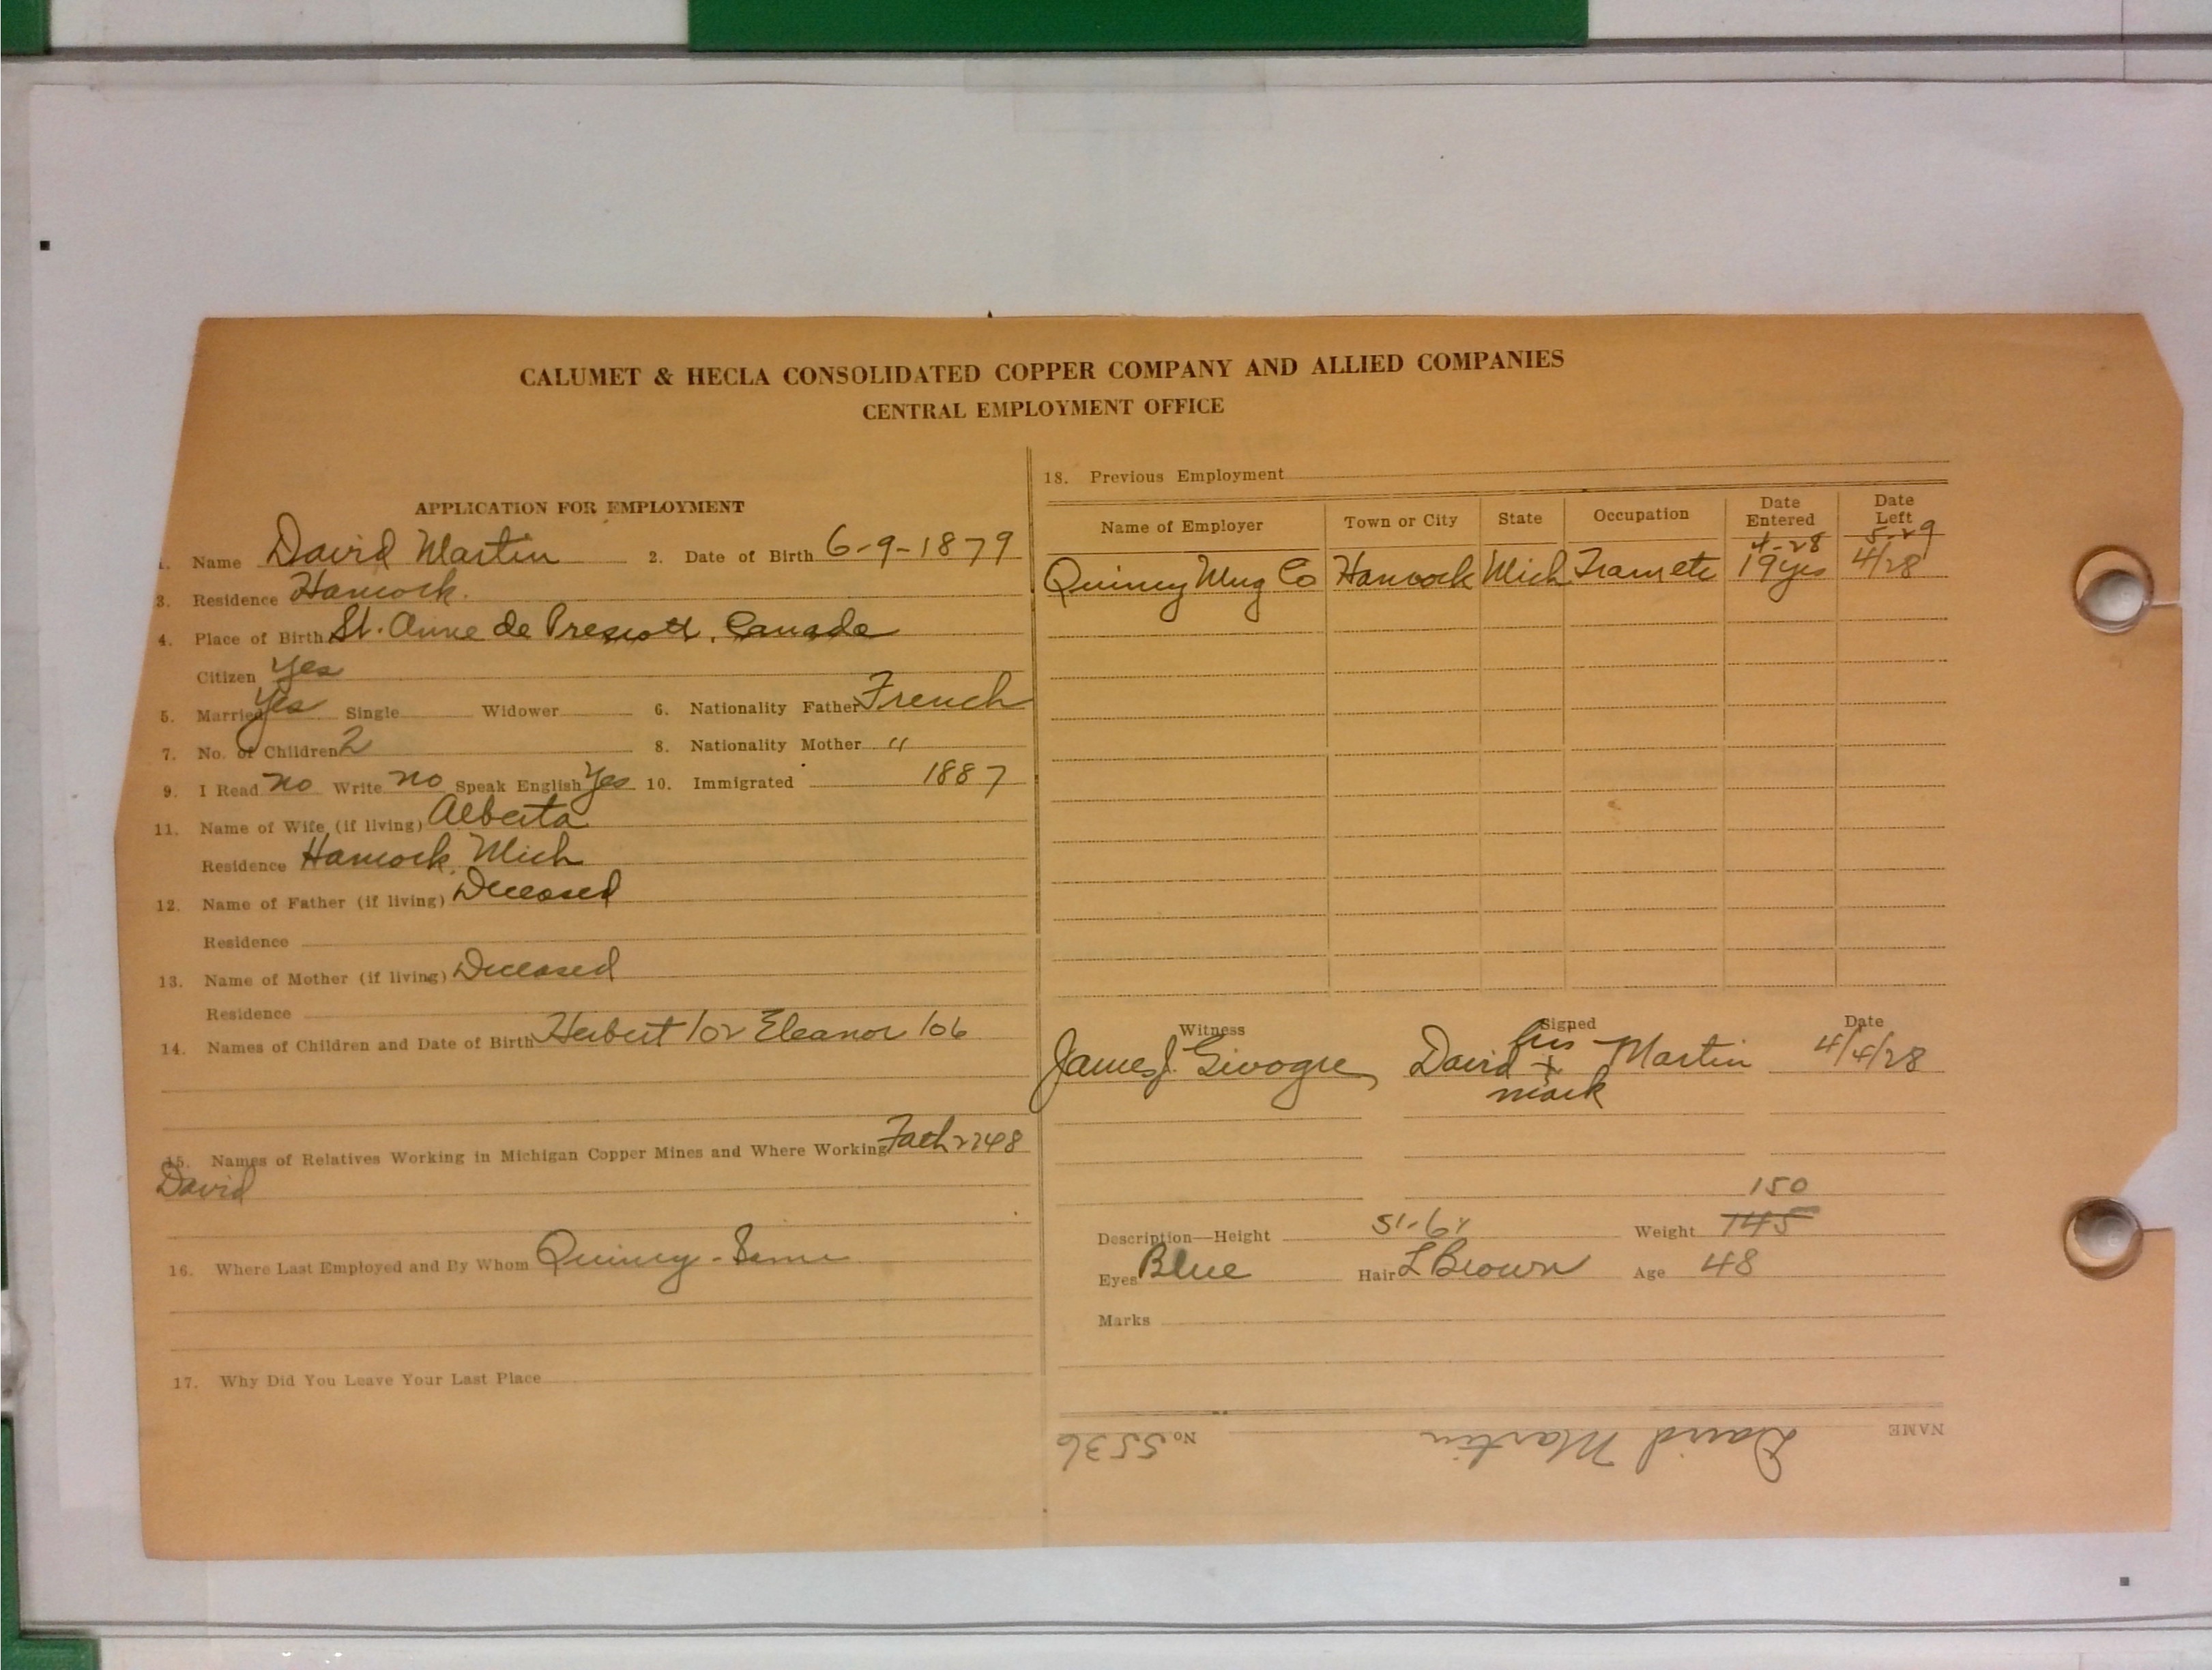 CALUMET & HECLA CONSOLIDATED COPPER COMPANY AND ALLIED COMPANIES
CENTRAL EMPLOYMENT OFFICE
APPLICATION FOR EMPLOYMENT
1. Name David Martin 2. Date of Birth 6-9-1879
3. Residence Hancock.
4. Place of Birth St. Anne de Prescott, Canada
Citizen Yes
5. Married Yes Single Widower 6. Nationality Father French
7. No. of Children 2 8. Nationality Mother "
9. I Read no Write no Speak English Yes 10. Immigrated 1887
11. Name of Wife (if living) Alberta
Residence Hancock, Mich
12. Name of Father (if living) Deceased
Residence
13. Name of Mother (if living) Deceased
Residence
14. Names of Children and Date of Birth Herbert /02 Eleanor /06
15. Names of Relatives Working in Michigan Copper Mines and Where Working
David
16. Where Last Employed and By Whom Quincy - Same
17. Why Did You Leave Your Last Place
18. Previous Employment
Name of Employer Town or City State Occupation Date Entered Date Left
4-28 5-29
Quincy Mng Co Hancock Mich Tram etc 19 yrs 4/28
Witness Signed Date
his
James J. David + Martin 4/4/28
mark
150
Description—Height 5'-6" Weight 145
Eyes Blue Hair L Brown Age 48
Marks
NAME David Martin No 5536